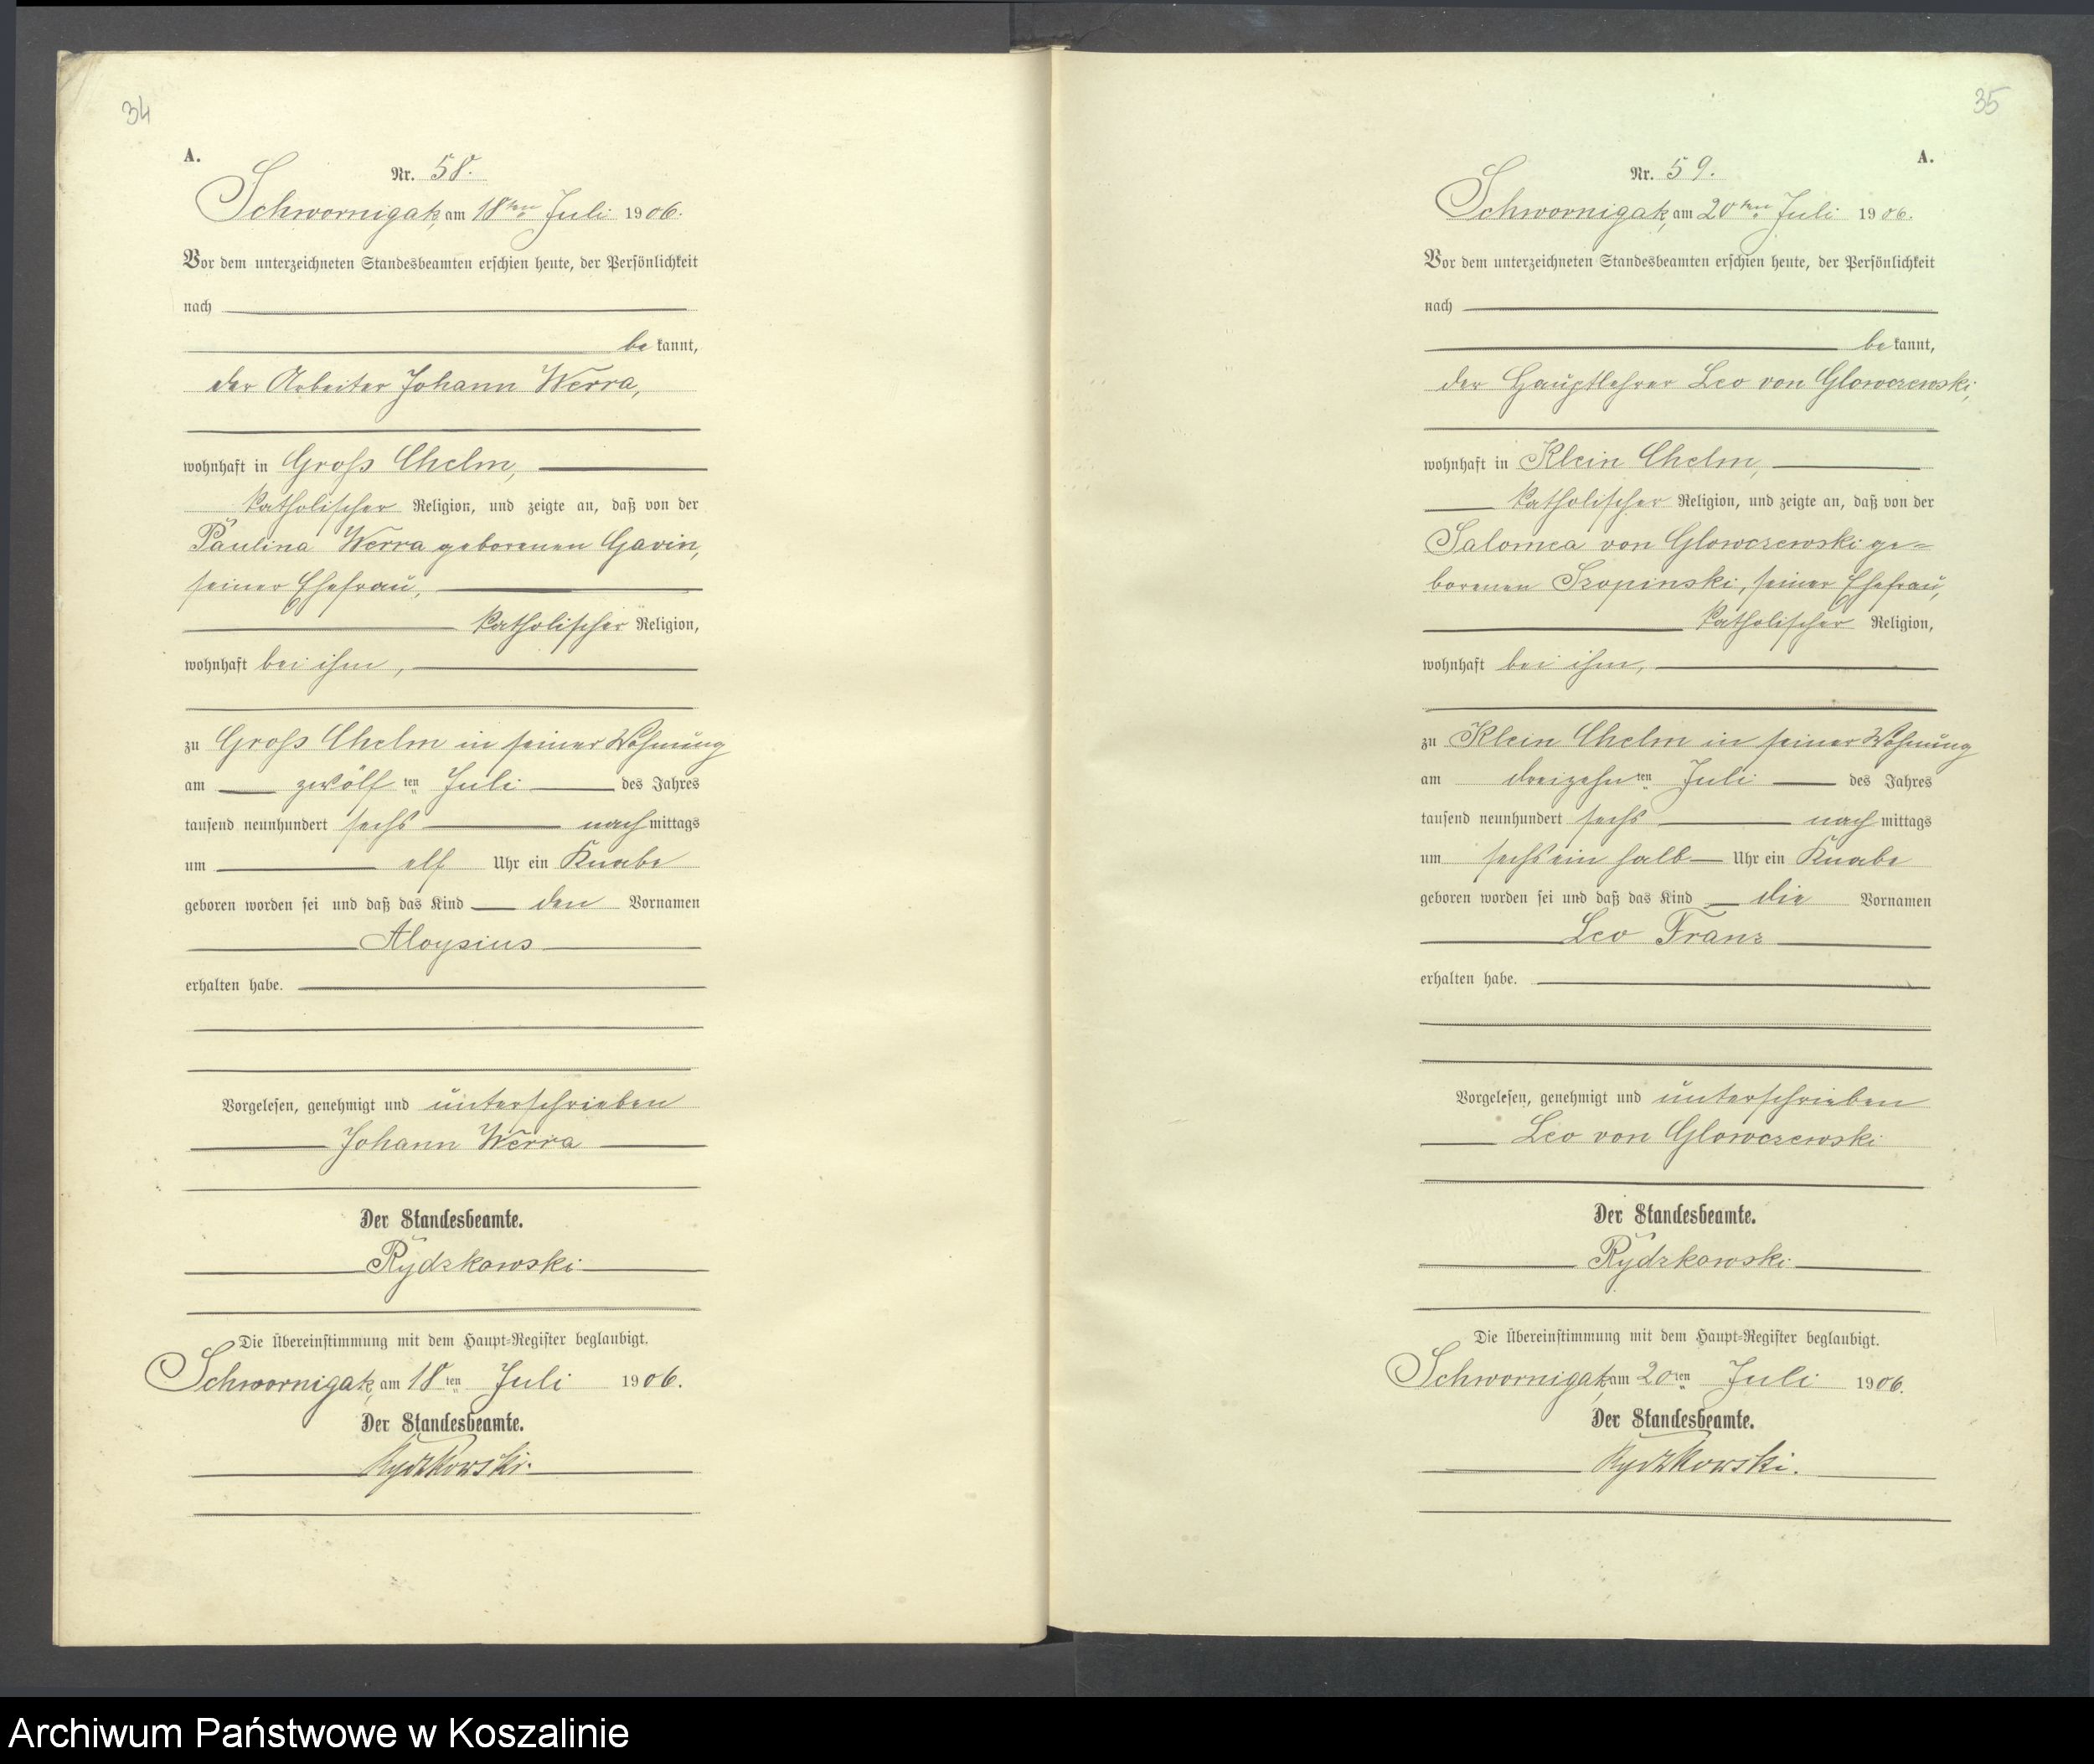 34
A.
Nr. 58.
Schwornigatz, am 18ten Juli 1906.
Vor dem unterzeichneten Standesbeamten erschien heute, der Persönlichkeit
nach
bekannt,
der Arbeiter Johann Werra,
wohnhaft in Groß Chelm,
katholischer Religion, und zeigte an, daß von der
Paulina Werra geborenen Gavin,
seiner Ehefrau,
katholischer Religion,
wohnhaft bei ihm,
zu Groß Chelm in seiner Wohnung
am zwölften Juli des Jahres
tausend neunhundert sechs nachmittags
um elf Uhr ein Knabe
geboren worden sei und daß das Kind den Vornamen
Aloysius
erhalten habe.
Vorgelesen, genehmigt und unterschrieben
Johann Werra
Der Standesbeamte.
Rydzkowski
Die Übereinstimmung mit dem Haupt-Register beglaubigt.
Schwornigatz, am 18ten Juli 1906.
Der Standesbeamte.
Rydzkowski.
35
A.
Nr. 59.
Schwornigatz, am 20ten Juli 1906.
Vor dem unterzeichneten Standesbeamten erschien heute, der Persönlichkeit
nach
bekannt,
der Hauptlehrer Leo von Glowczewski,
wohnhaft in Klein Chelm,
katholischer Religion, und zeigte an, daß von der
Salomea von Glowczewski ge-
borenen Szopinski, seiner Ehefrau,
katholischer Religion,
wohnhaft bei ihm,
zu Klein Chelm in seiner Wohnung
am dreizehnten Juli des Jahres
tausend neunhundert sechs nachmittags
um sechs ein halb Uhr ein Knabe
geboren worden sei und daß das Kind die Vornamen
Leo Franz
erhalten habe.
Vorgelesen, genehmigt und unterschrieben
Leo von Glowczewski
Der Standesbeamte.
Rydzkowski
Die Übereinstimmung mit dem Haupt-Register beglaubigt.
Schwornigatz, am 20ten Juli 1906.
Der Standesbeamte.
Rydzkowski.
Archiwum Państwowe w Koszalinie